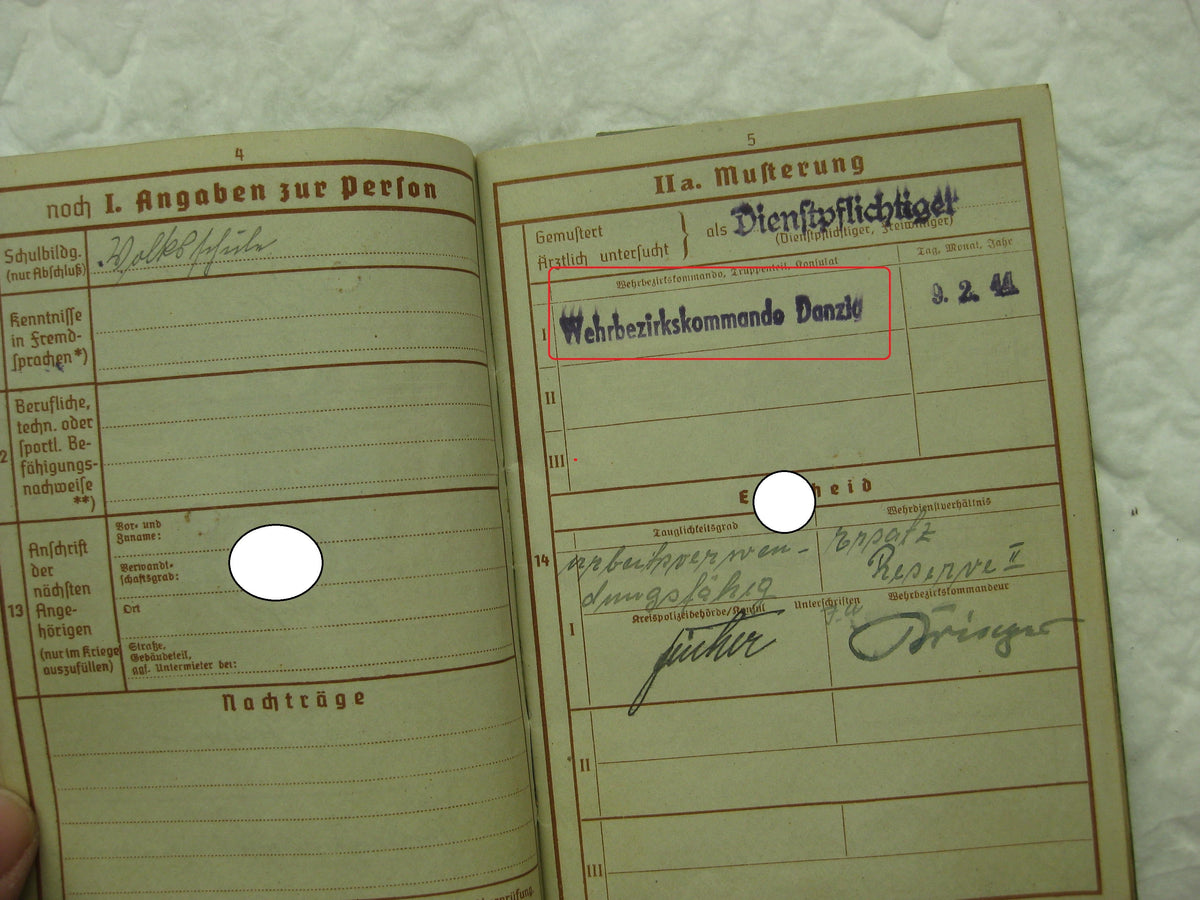 4
noch I. Angaben zur Person
Schulbildg.
(nur Abschluß)
Volksschule
Kenntnisse
in Fremd-
sprachen*)
2
Berufliche,
techn. oder
sportl. Be-
fähigungs-
nachweise
**)
13
Anschrift
der
nächsten
Ange-
hörigen
(nur im Kriege
auszufüllen)
Vor- und
Zuname:
Verwandt-
schaftsgrad:
Ort
Straße,
Gebäudeteil,
ggf. Untermieter bei:
Nachträge
5
IIa. Musterung
Gemustert
Ärztlich untersucht
als Dienstpflichtiger
(Dienstpflichtiger, Freiwilliger)
Wehrbezirkskommando, Truppenteil, Konsulat
Tag, Monat, Jahr
I
Wehrbezirkskommando Danzig
9. 2. 44
II
III
E heid
Tauglichkeitsgrad
Wehrdienstverhältnis
14
arbeitsverwen-
dungsfähig
Ersatz
Reserve II
Kreispolizeibehörde/Konsul
Unterschriften
Wehrbezirkskommandeur
I
II
III